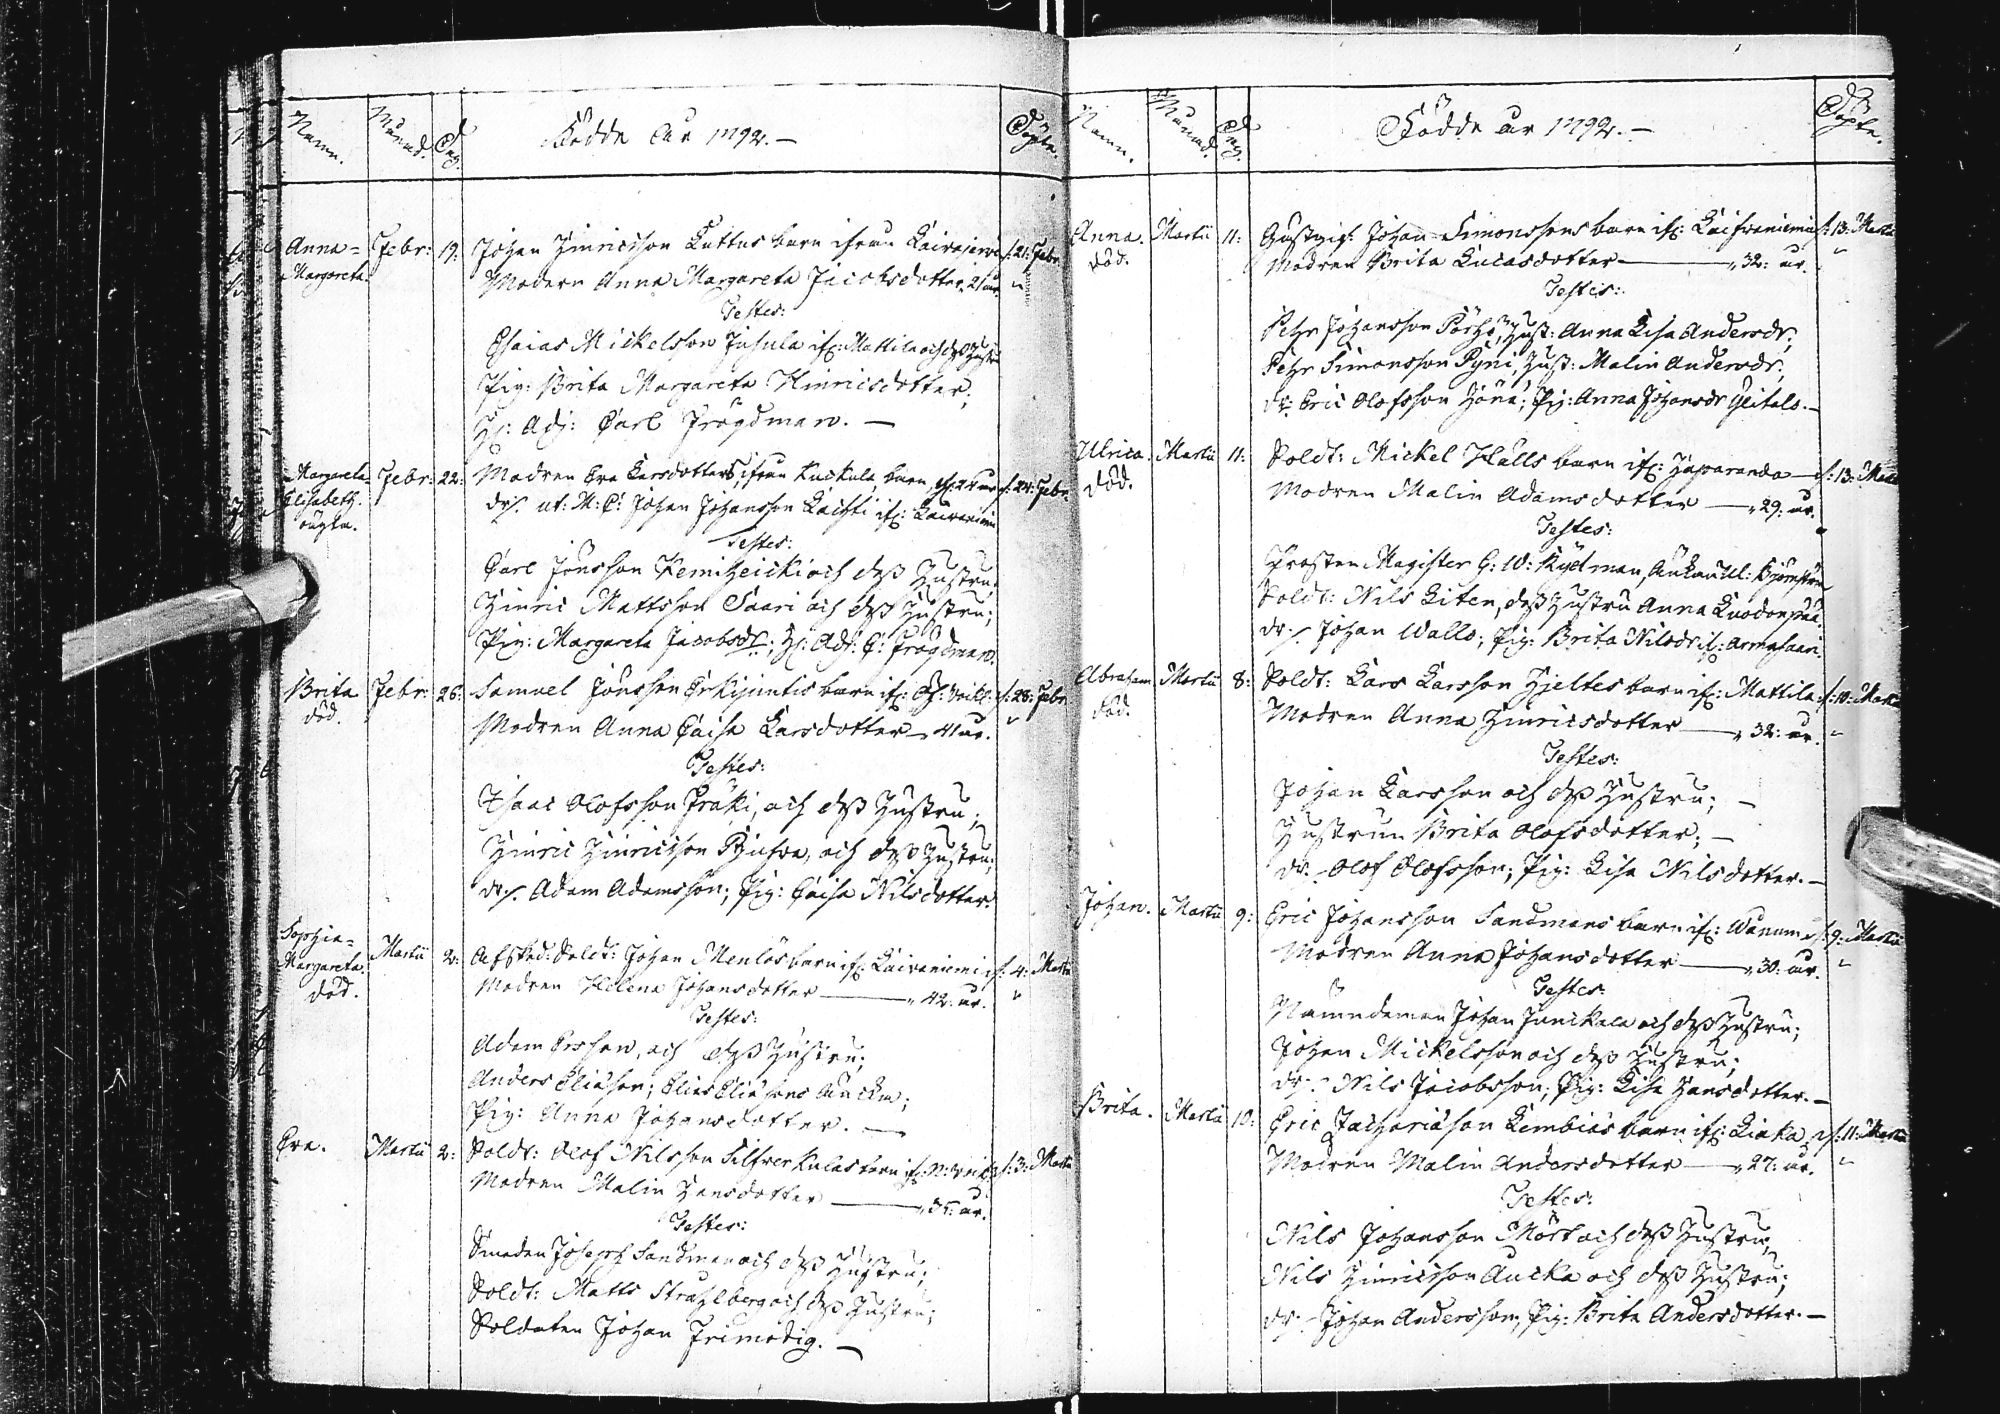 Namn. Månad. Dag. Födde År 1792. — Döpte.
Anna= Febr: 19: Johan Hinricsson Kuttus barn ifrån d. 21: Febr.
Margareta. Modern Anna Margareta Jacobsdotter. 21 år.
Testes:
Esaias Mickelsson Juhula if: Mattila och dess Hustru
Pig: Brita Margareta Hinricsdotter;
H: Adj: Carl Frögdman. —
Margareta Febr: 22: Modren Eva Larsdotter, ifrån Kuckula, barn d. 24: Febr.
Elisabeth. Johan Johansson
oägta.
Testes:
Carl Jönsson Kemiheicki och dess Hustru;
Hinric Mattsson Saari och dess Hustru;
Pig: Margareta Jacobsdr; H: Adj: C: Frögdman.
Brita Febr: 26: Samuel Jönsson barn if: d. 28: Febr.
död. Modren Anna Caisa Larsdotter — 41 år.
Testes:
Isaac Olofsson Präki, och dess Hustru;
Hinric Hinricsson och dess Hustru;
dr: Adam Adamsson; Pig: Caisa Nilsdotter.
Sophia= Martii 2: Afsked: Soldt: Johan Menlös barn if: Laivaniemi d: 4: Martii
Margareta. Modren Helena Johansdotter — 42. år.
död.
Testes:
Adam Ersson, och dess Hustru;
Anders Eliasson; Elias Eliassons Enka;
Pig: Anna Johansdotter. —
Eva. Martii 2: Soldt: Olof Nilsson Silfverkulas barn if: d: 3: Martii
Modren Malin Hansdotter — år.
Testes:
Smeden Joseph Sandman och dess Hustru;
Soldt: Matts Stråhlberg och dess Hustru;
Soldaten Johan Frimodig. —
Namn. Månad. Dag. Födde år 1792. — Döpte.
Anna. Martii 11: Johan Simonssons barn if: Laivaniemi d: 13: Martii
död. Modren Brita Lucasdotter — 32: år.
Testes:
Pehr Johansson Hust: Anna Lisa Andersdr;
Pehr Simonsson Pyni, Hust: Malin Andersdr;
dr: Eric Olofsson Pig: Anna Johansdr
Ulrica. Martii 11: Soldt: Mickel Hålls barn if: Haparanda — d: 13: Martii
död. Modren Malin Adamsdotter — 29: år.
Testes:
Prosten Magister G: W: Rydman, Björnström
Soldt: Nils Liten, dess Hustru Anna
dr: Johan Wallo; Pig: Brita Nilsdr if: Armasaari.
Abraham Martii 8: Soldt: Lars Larsson Hjeltes barn if: Mattila d: 10: Martii
död. Modren Anna Hinricsdotter — 32: år.
Testes:
Johan Larsson och dess Hustru; —
Hustrun Brita Olofsdotter; —
dr: Olof Olofsson; Pig: Lisa Nilsdotter. —
Johan. Martii 9: Eric Johansson Sandmans barn if: d: 9: Martii
Modren Anna Johansdotter — 30: år.
Testes:
Nämndeman Johan Junckala och dess Hustru;
Johan Mickelsson och dess Hustru;
dr: Nils Jacobsson; Pig: Lisa Hansdotter. —
Brita. Martii 10: Eric Zachariasson barn if: Liaka d: 11: Martii
Modren Malin Andersdotter — 27: år.
Testes:
Nils Johansson Mört och dess Hustru;
Nils Hinricsson Aucka och dess Hustru;
dr: Johan Andersson, Pig: Brita Andersdotter. —